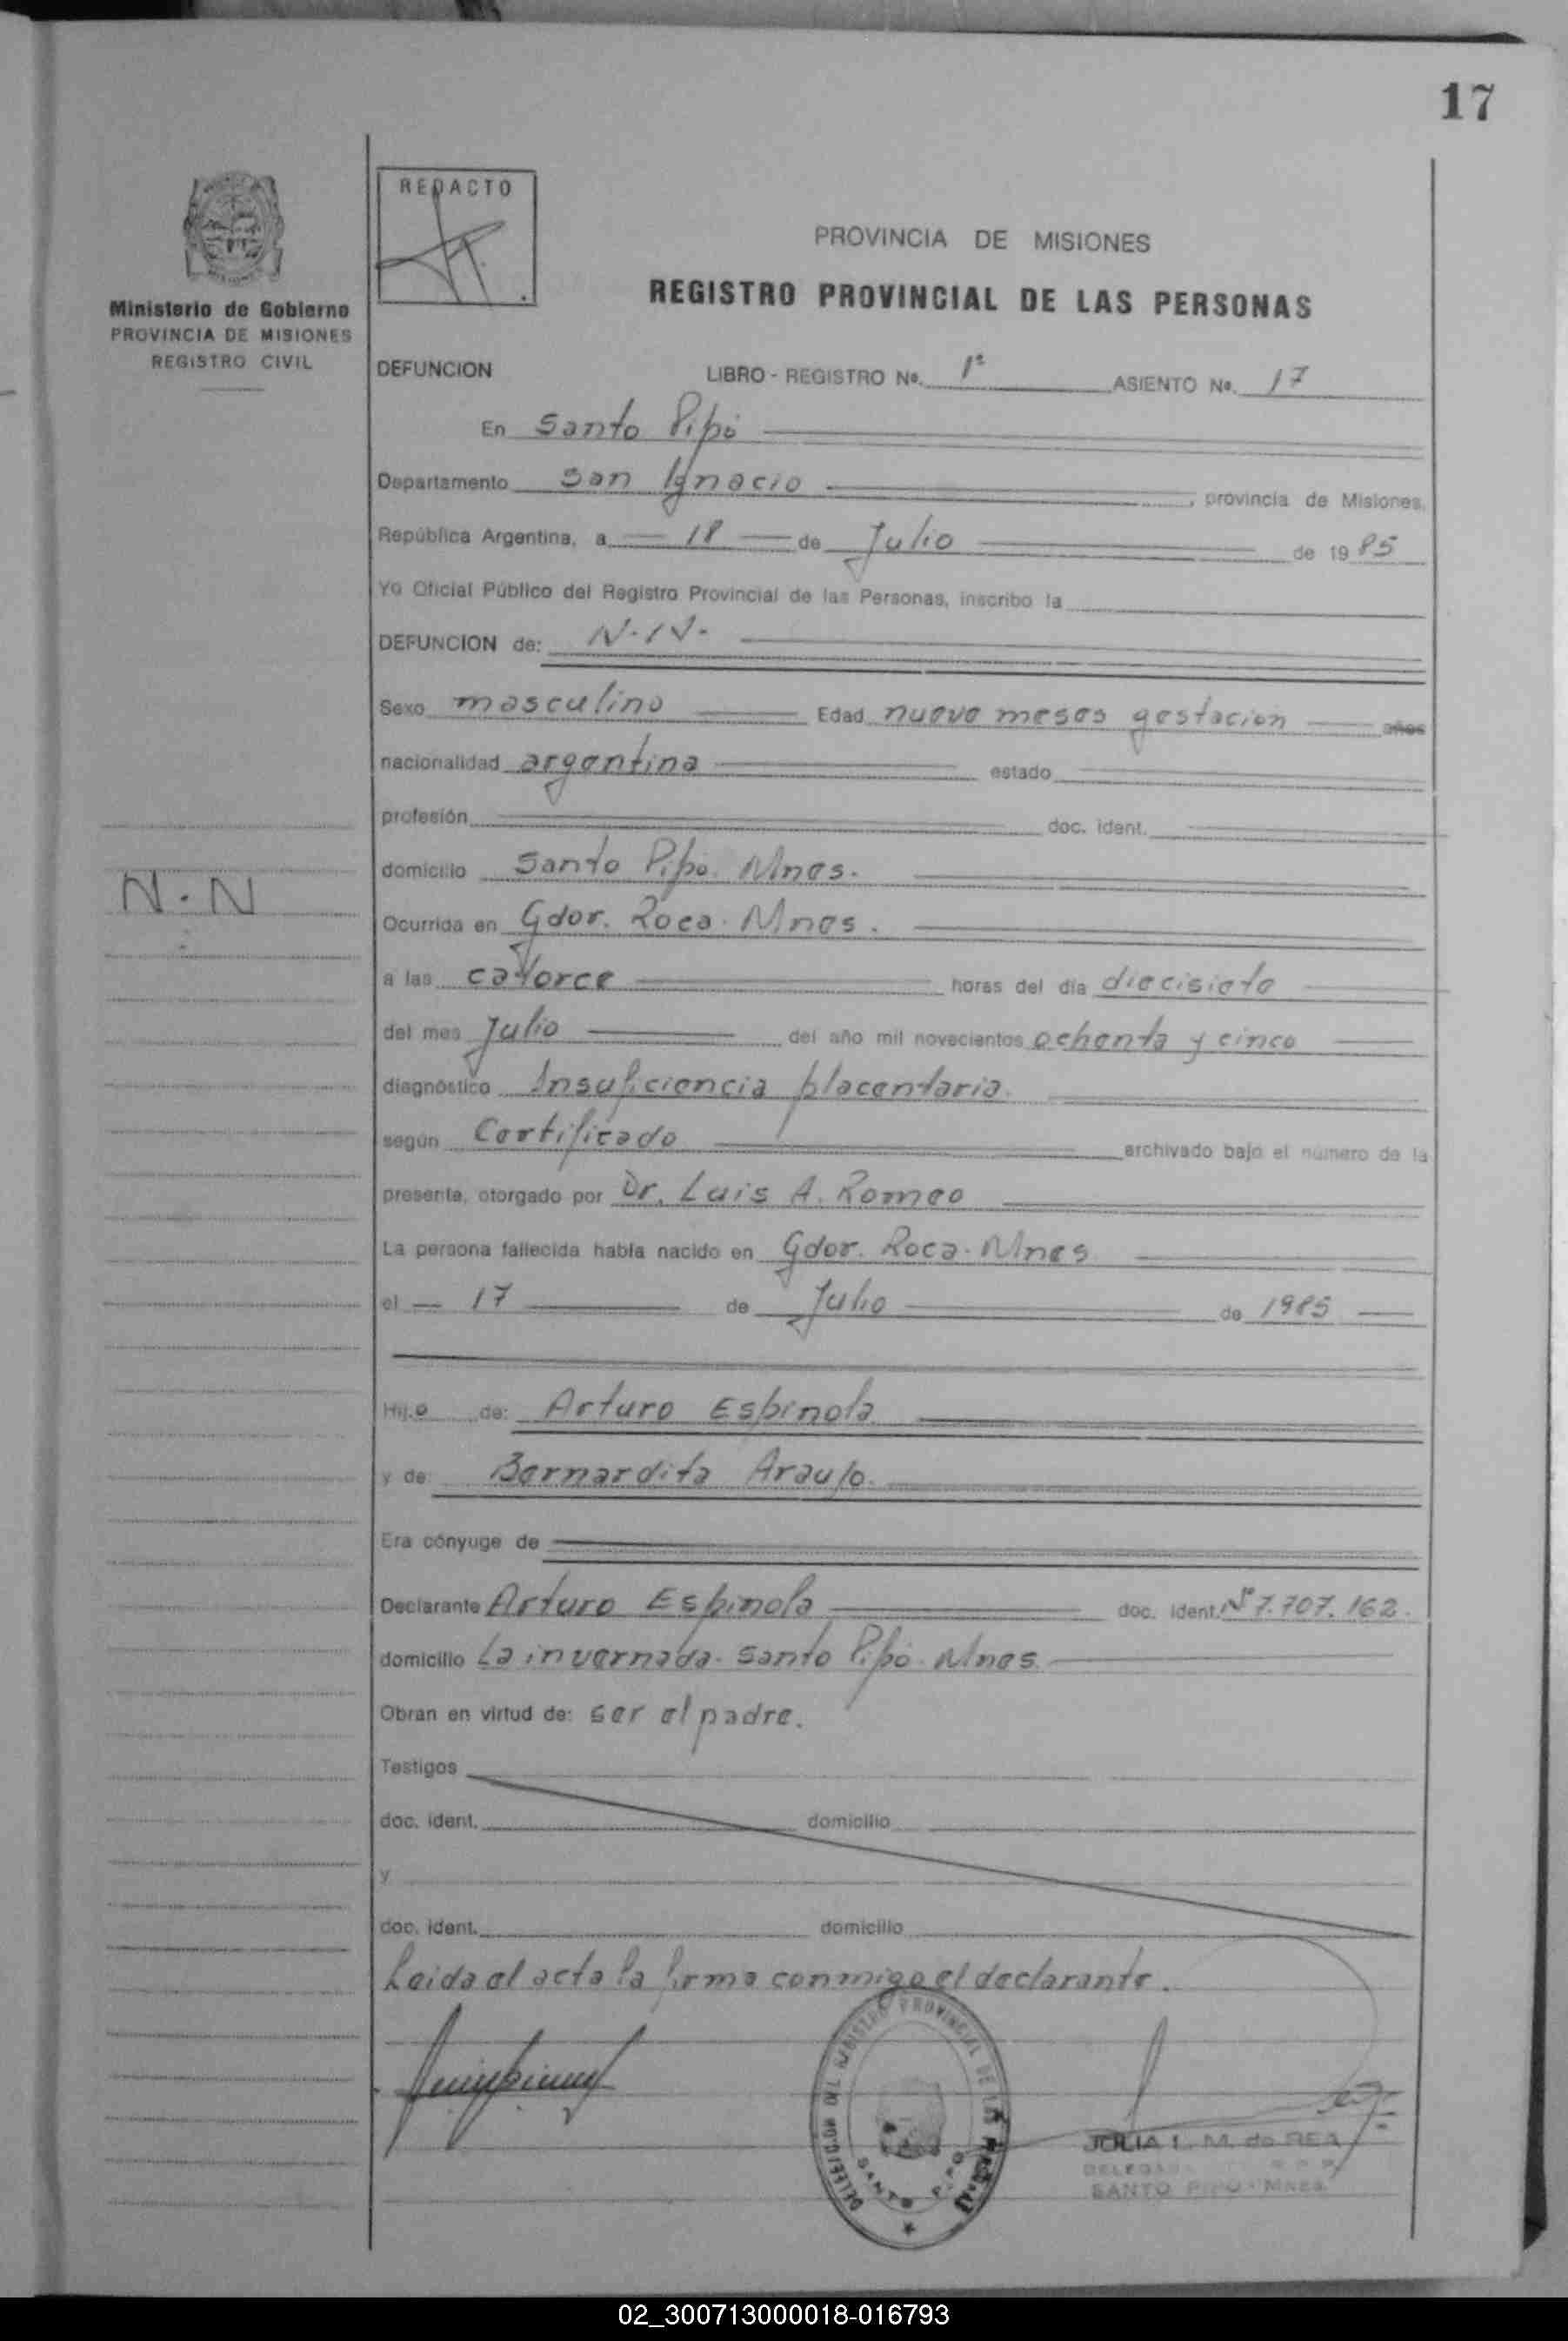 17
REDACTO
PROVINCIA DE MISIONES
REGISTRO PROVINCIAL DE LAS PERSONAS
Ministerio de Gobierno
PROVINCIA DE MISIONES
REGISTRO CIVIL
DEFUNCION LIBRO - REGISTRO Nº. 1º ASIENTO Nº. 17
En Santo Pipó
Departamento San Ignacio, provincia de Misiones,
República Argentina, a 18 de Julio de 1985
Yo Oficial Público del Registro Provincial de las Personas, inscribo la
DEFUNCION de: N.N.
Sexo masculino Edad nueve meses gestacion años
nacionalidad argentina estado
profesión doc. ident.
domicilio Santo Pipó. Mnes.
N.N
Ocurrida en Gdor. Roca. Mnes.
a las catorce horas del día diecisiete
del mes Julio del año mil novecientos ochenta y cinco
diagnóstico Insuficiencia placentaria.
según Certificado archivado bajo el número de la
presente, otorgado por Dr. Luis A. Romeo
La persona fallecida había nacido en Gdor. Roca. Mnes
el 17 de Julio de 1985
Hijo de: Arturo Espinola
y de Bernardita Araujo.
Era cónyuge de
Declarante Arturo Espinola doc. ident. Nº 7.707.162.
domicilio La invernada. Santo Pipó. Mnes.
Obran en virtud de: ser el padre.
Testigos
doc. ident. domicilio
y
doc. ident. domicilio
Leida el acta la firma conmigo el declarante.
DELEGACION DEL REGISTRO PROVINCIAL DE LAS PERSONAS
SANTO PIPO
JULIA I. M. de REA
SANTO PIPO - MNES.
02_300713000018-016793